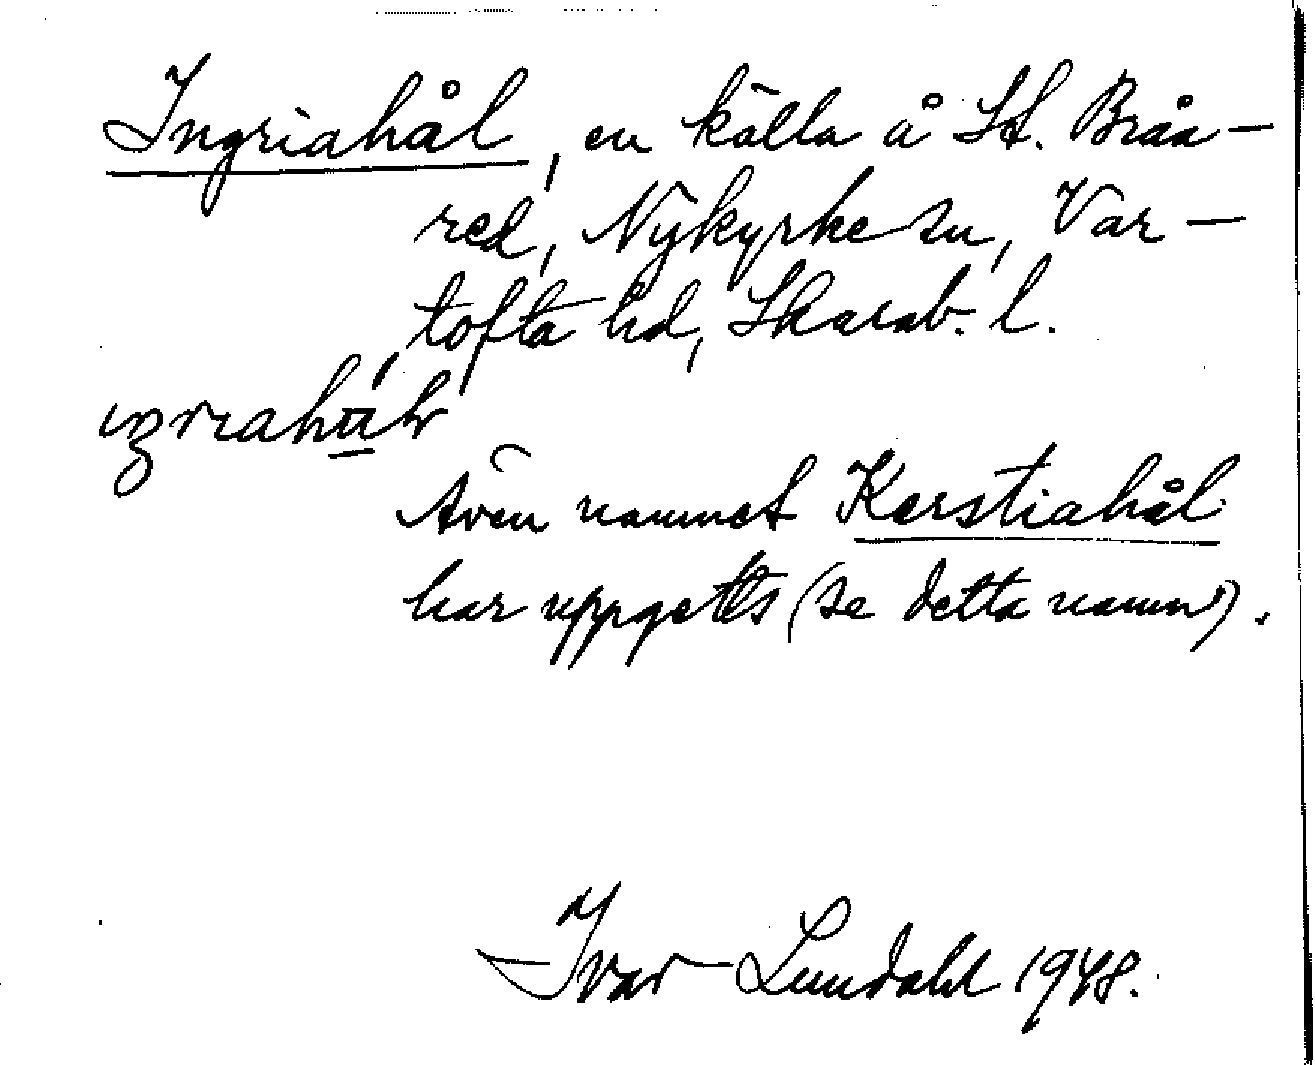 Ingriahål, en källa å St. Bråa-
red, Nykyrke sn, Var-
tofta hd, Skarab. l.
Även namnet Kerstiahål
har uppgetts (se detta namn).
Ivar Lundahl 1948.